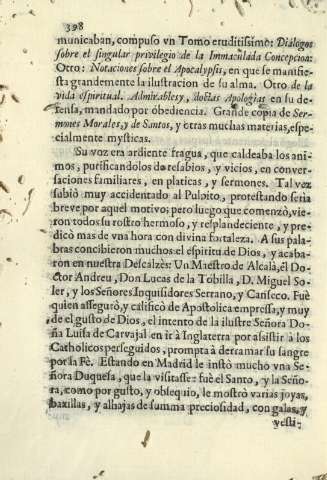 398
municaban, compuso vn Tomo eruditissimo: Dialogos
sobre el singular privilegio de la Immaculada Concepcion:
Otro: Notaciones sobre el Apocalypsis, en que se manifies-
ta grandemente la ilustracion de su alma. Otro de la
vida espiritual. Admirables, y doctas Apologias en su de-
fensa, mandado por obediencia. Grande copia de Ser-
mones Morales, y de Santos, y otras muchas materias, espe-
cialmente mysticas.
Su voz era ardiente fragua, que caldeaba los ani-
mos, purificandolos de resabios, y vicios, en conver-
saciones familiares, en platicas, y sermones. Tal vez
subiò muy accidentado al Pulpito, protestando seria
breve por aquel motivo; pero luego que comenzò, vie-
ron todos su rostro hermoso, y resplandeciente, y pre-
dicò mas de vna hora con divina fortaleza. A sus pala-
bras concibieron muchos el espiritu de Dios, y acaba-
ron en nuestra Descalzès: Un Maestro de Alcalà, el Do-
ctor Andreu, Don Lucas de la Tobilla, D. Miguel So-
ler, y los Señores Inquisidores Serrano, y Canseco. Fuè
quien assegurò, y calificò de Apostolica empressa, y muy
de el gusto de Dios, el intento de la ilustre Señora Do-
ña Luisa de Carvajal en ir à Inglaterra por assistir à los
Catholicos perseguidos, prompta à derramar su sangre
por la Fè. Estando en Madrid le instò mucho vna Se-
ñora Duquesa, que la visitasse: fuè el Santo, y la Seño-
ra, como por gusto, y obsequio, le mostrò varias joyas,
baxillas, y alhajas de summa preciosidad, con galas, y
vesti-